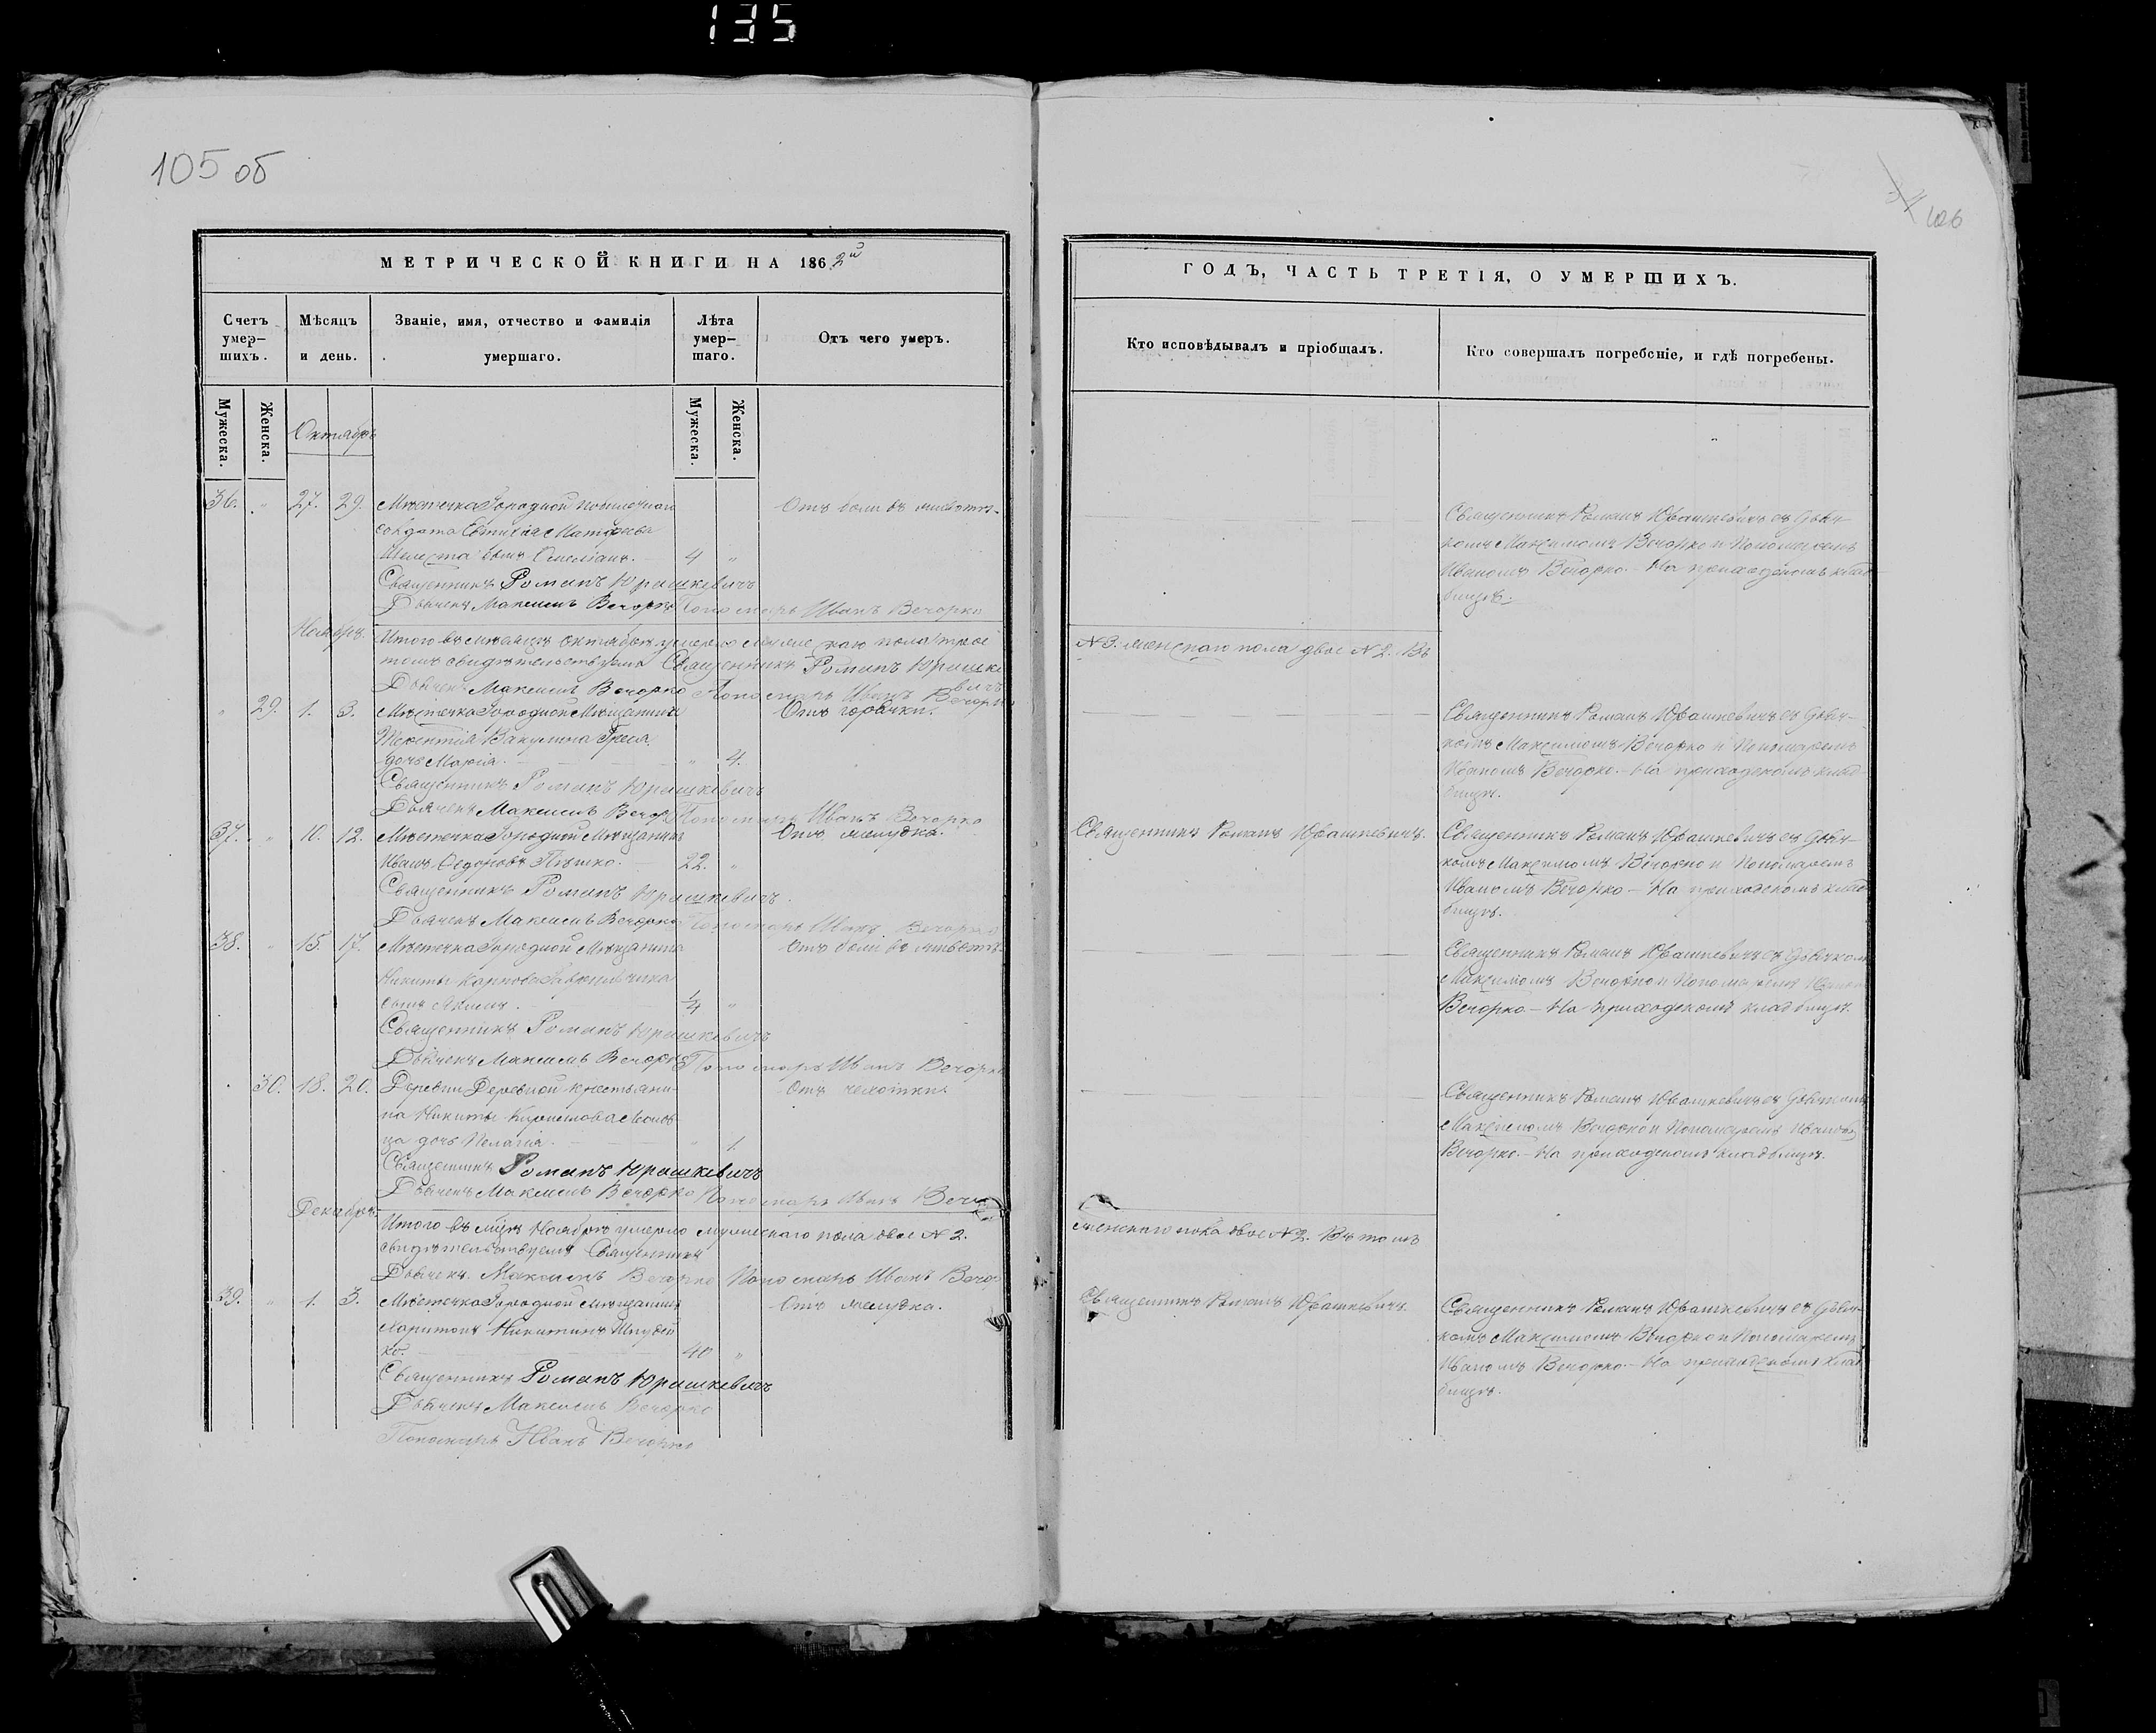 135
105 об
106
МЕТРИЧЕСКОЙ КНИГИ НА 1862й
Счетъ умер–шихъ.
Мѣсяцъ и день.
Званіе, имя, отчество и фамилія умершаго.
Лѣта умер–шаго.
Отъ чего умеръ.
Мужеска.
Женска.
Мужеска.
Женска.
Октябрь
36. " 27. 29. Мѣстечка Городной
солдата Евтихія Матфеева Отъ боли въ животѣ.
сынъ 4 "
Священникъ Романъ Юрашкевичъ
Дьячекъ Максимъ Вечорко Пономарь Иванъ Вечорко
Ноябрь.
Итого въ мѣсяцѣ Октябрѣ умерло мужескаго пола трое
томъ свидѣтельствуемъ Священникъ Романъ Юрашкевичъ
Дьячекъ Максимъ Вечорко Пономарь Иванъ Вечорко
" 29. 1. 3. Мѣстечка Городной Мѣщанина Отъ горячки.
Терентія Вакулина
дочь Марія. " 4.
Священникъ Романъ Юрашкевичъ
Дьячекъ Максимъ Вечорко Пономарь Иванъ Вечорко
37. " 10. 12. Мѣстечка Городной Мѣщанинъ Отъ желудка.
Иванъ Ѳедоровъ Пѣшко. 22. "
Священникъ Романъ Юрашкевичъ.
Дьячекъ Максимъ Вечорко Пономарь Иванъ Вечорко
38. " 15. 17. Мѣстечка Городной Мѣщанина Отъ боли въ животѣ.
Никиты Карпова
сынъ 1/4 "
Священникъ Романъ Юрашкевичъ
Дьячекъ Максимъ Вечорко Пономарь Иванъ Вечорко
" 30. 18. 20. Деревни Деревной крестьяни- Отъ чехотки.
на Никиты
ца дочь Пелагія. " 1.
Священникъ Романъ Юрашкевичъ
Дьячекъ Максимъ Вечорко Пономарь Иванъ
Декабрь.
Итого въ Ноябрѣ умерло мужескаго пола двое № 2.
свидѣтельствуемъ Священникъ
Дьячекъ Максимъ Вечорко Пономарь Иванъ
39. " 1. 3. Мѣстечка Городной Мѣщанинъ Отъ желудка.
Харитонъ Никитинъ
ко. 40 "
Священникъ Романъ Юрашкевичъ
Дьячекъ Максимъ Вечорко
Пономарь Иванъ Вечорко
ГОДЪ, ЧАСТЬ ТРЕТІЯ, О УМЕРШИХЪ.
Кто исповѣдывалъ и пріобщалъ.
Кто совершалъ погребеніе, и гдѣ погребены.
Священникъ Романъ Юрашкевичъ съ Дьяч-
комъ Максимомъ Вечорко и Пономаремъ
Иваномъ Вечорко. На приходскомъ клад-
бищѣ.
№ 3. женскаго пола двое № 2. Въ
Священникъ Романъ Юрашкевичъ съ Дьяч-
комъ Максимомъ Вечорко и Пономаремъ
Иваномъ Вечорко. На приходскомъ клад-
бищѣ.
Священникъ Романъ Юрашкевичъ.
Священникъ Романъ Юрашкевичъ съ Дьяч-
комъ Максимомъ Вечорко и Пономаремъ
Иваномъ Вечорко – На приходскомъ клад-
бищѣ.
Священникъ Романъ Юрашкевичъ съ Дьячкомъ
Максимомъ Вечорко и Пономаремъ
Вечорко – На приходскомъ кладбищѣ.
Священникъ Романъ Юрашкевичъ съ Дьячкомъ
Максимомъ Вечорко и Пономаремъ Иваномъ
Вечорко. – На приходскомъ кладбищѣ.
женскаго пола двое № 2. Въ томъ
Священникъ Романъ Юрашкевичъ.
Священникъ Романъ Юрашкевичъ съ Дьяч-
комъ Максимомъ Вечорко и Пономаремъ
Иваномъ Вечорко. – На приходскомъ клад-
бищѣ.